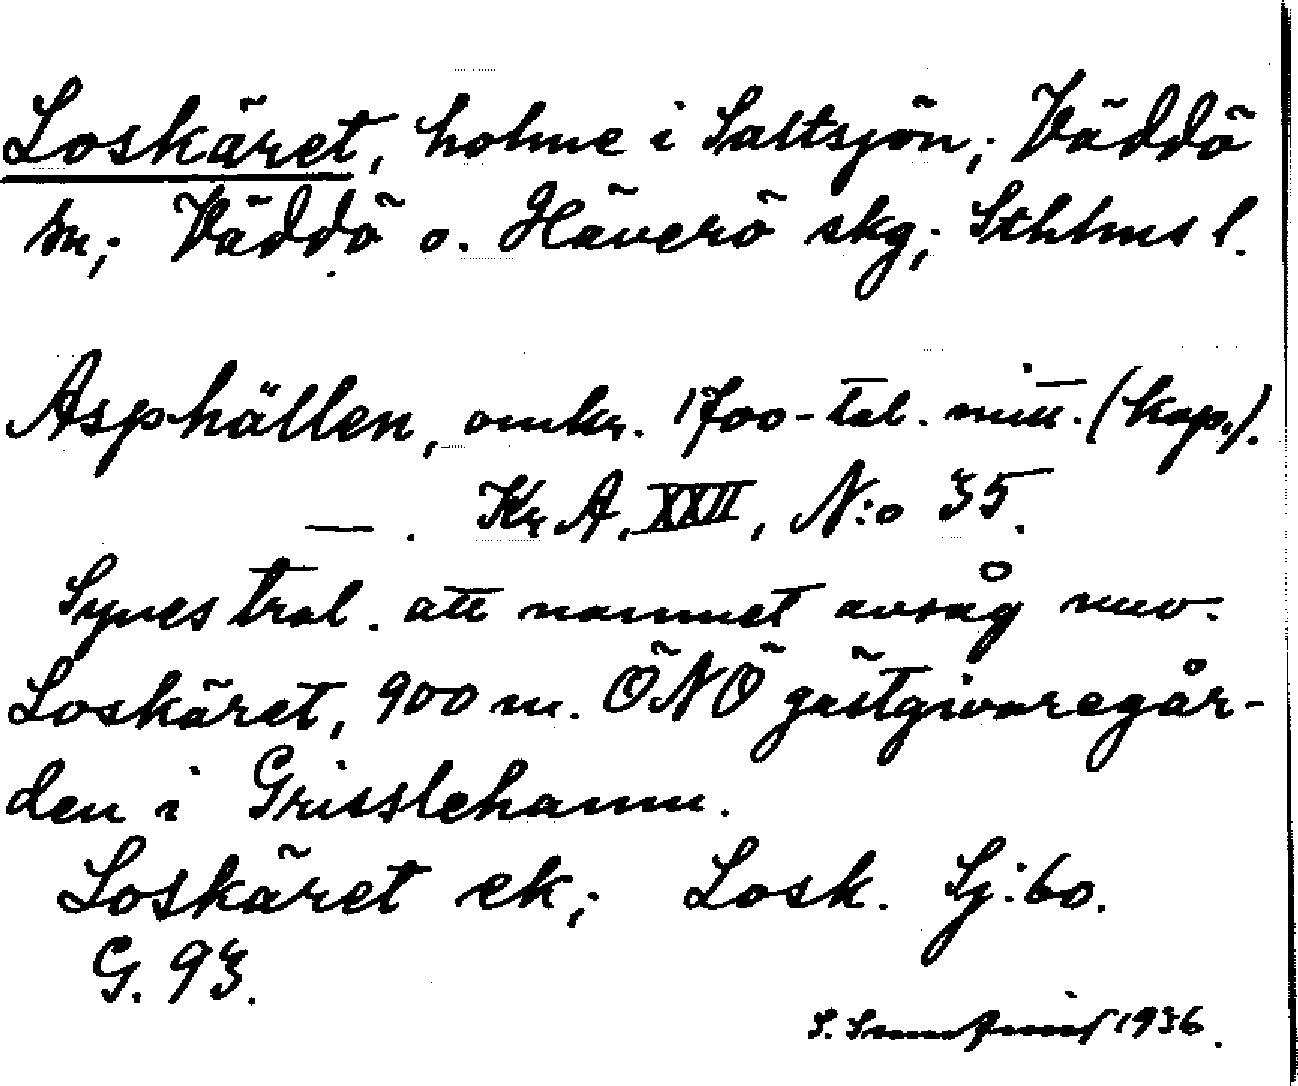 Loskäret, holme i Saltsjön; Väddö
sn; Väddö o. Häverö skg; Sthlms l.
Asphällen, omkr. 1700-tal. mitt. (Kop.).
—. Kr. A. XXII, N:o 35.
Synes tral. att namnet avsåg nuv.
Loskäret, 900 m. ÖNÖ gästgivaregår-
den i Grisslehamn.
Loskäret ek; Losk. Sj:bo.
G. 93.
S. 1936.